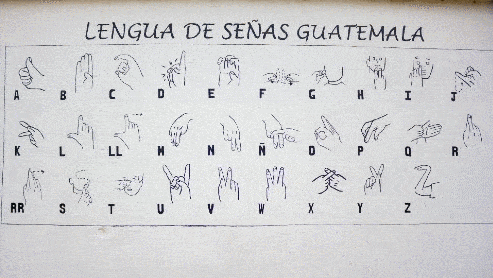 LENGUA DE SEÑAS GUATEMALA
A B C D E F G H I J
K L LL M N Ñ O P Q R
RR S T U V W X Y Z